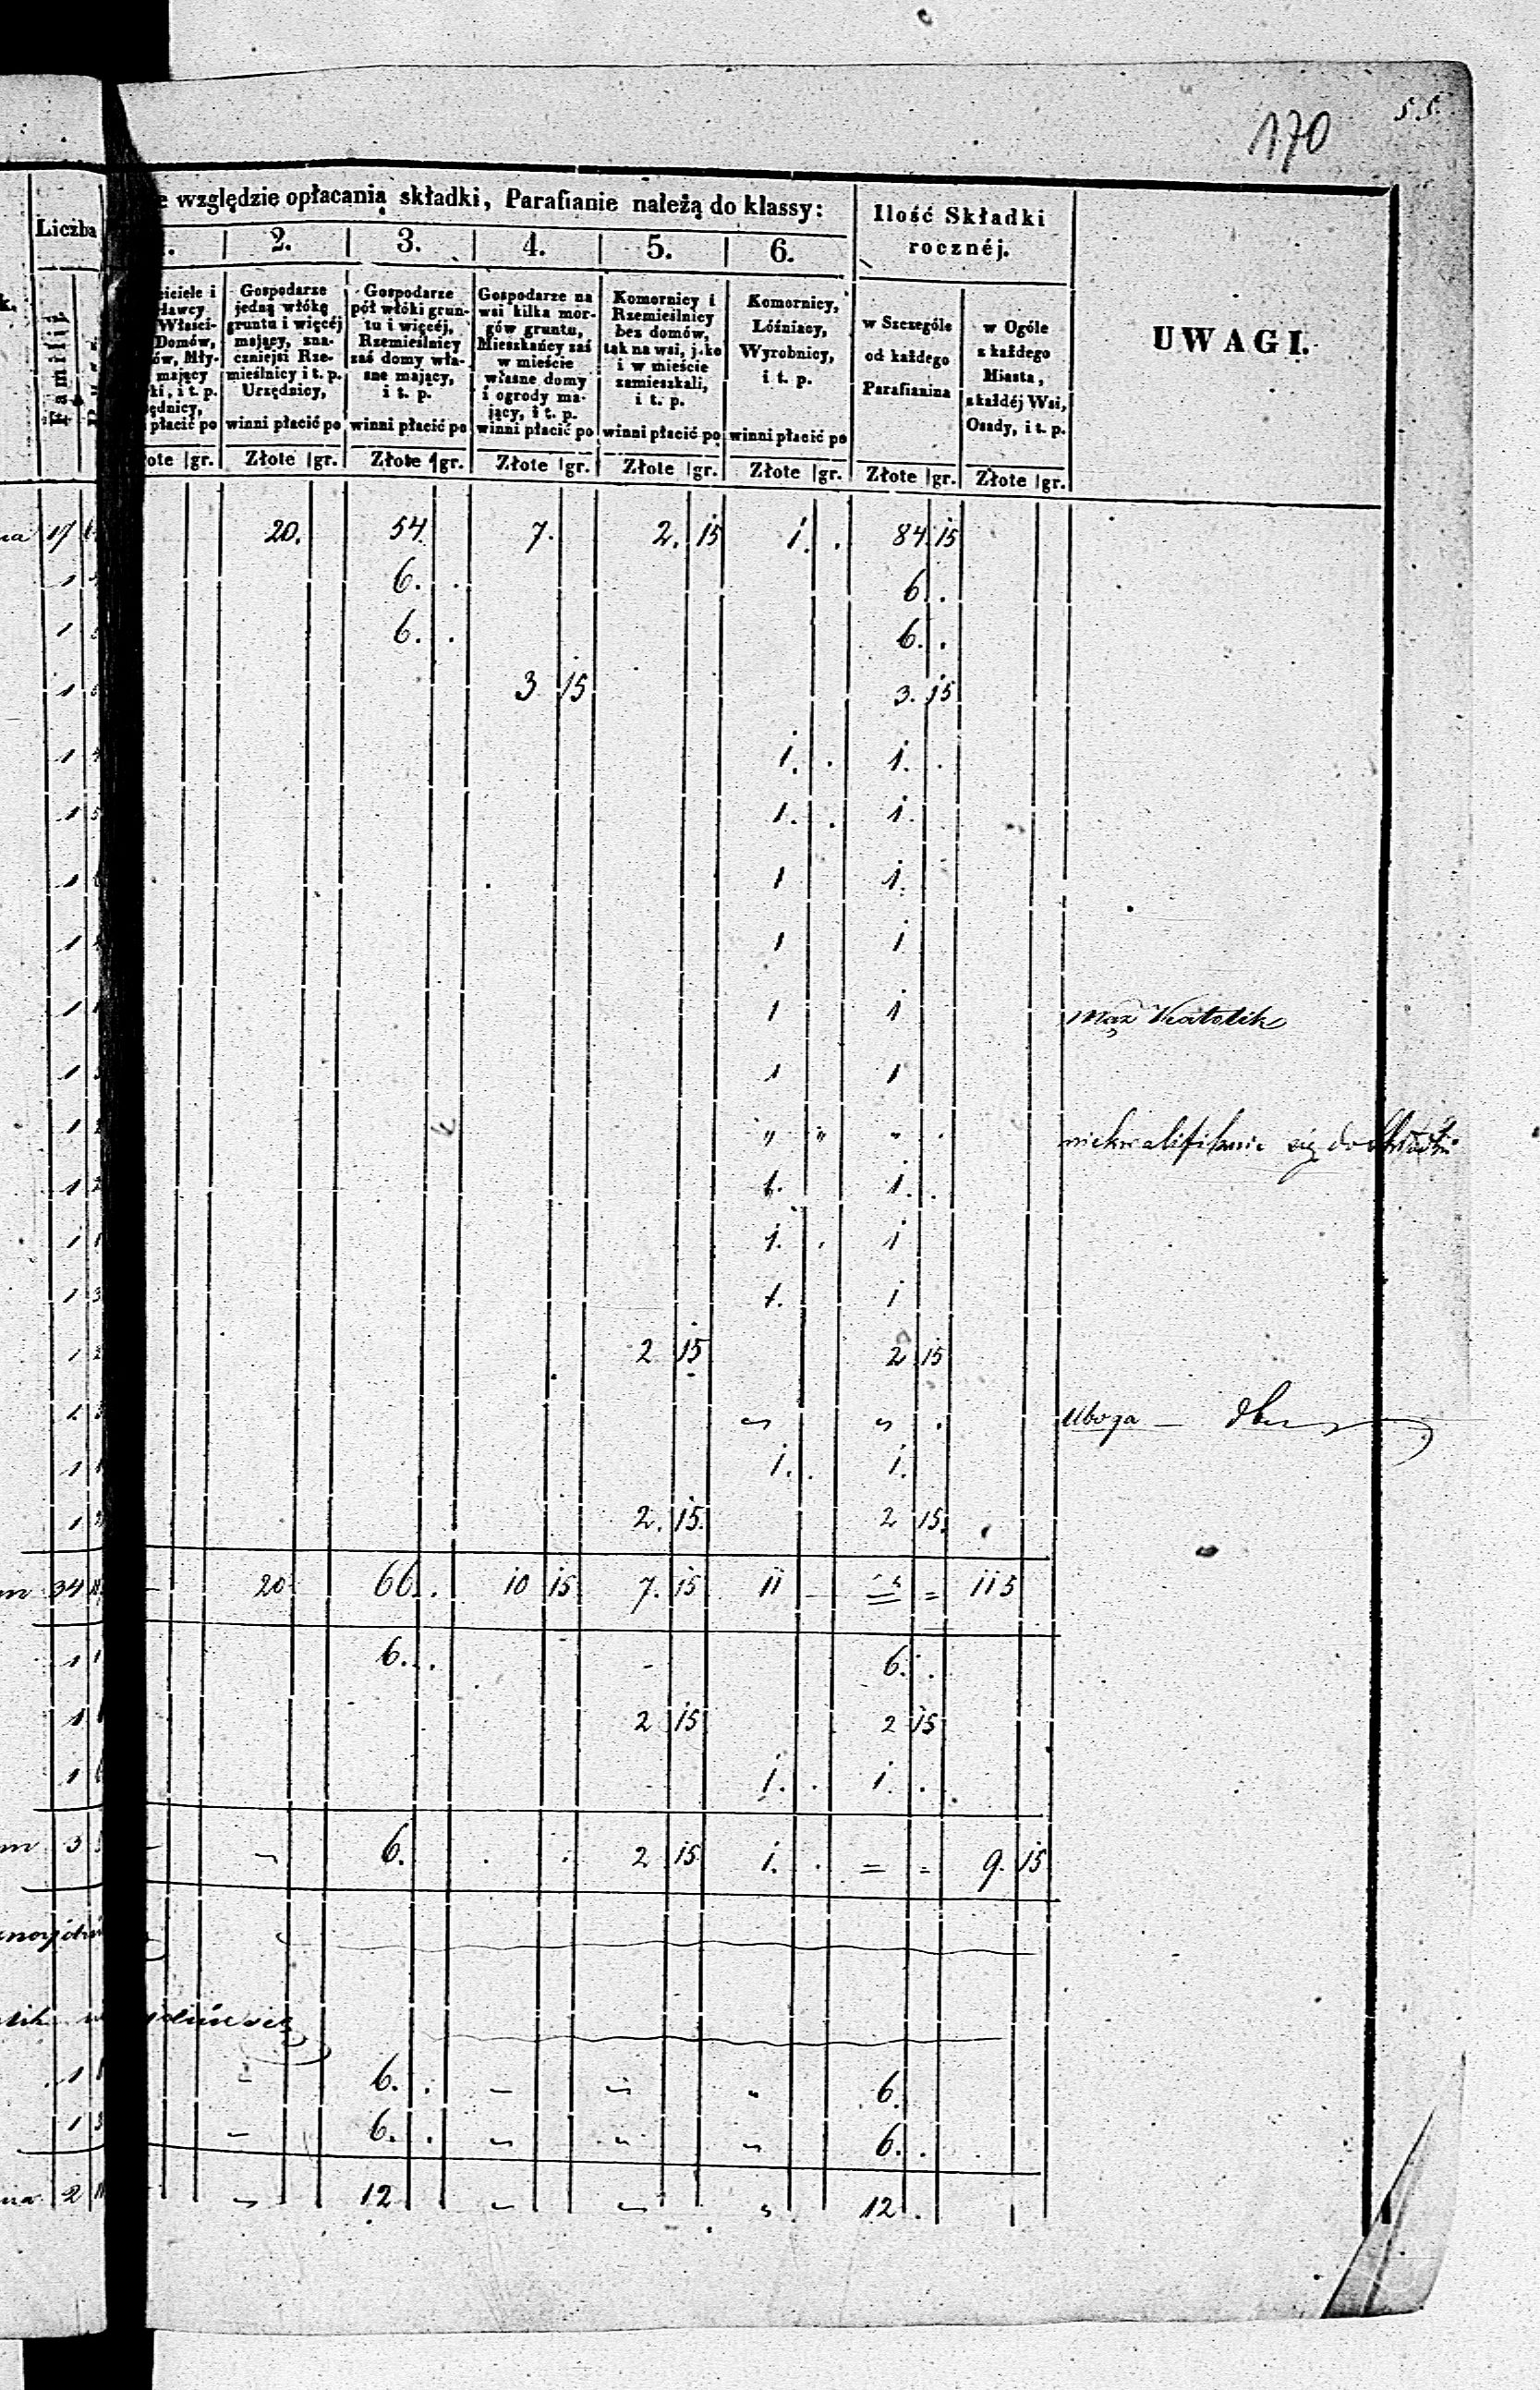 170
55.
względzie opłacania składki, Parafianie należą do klassy:
Ilość Składki
rocznéj.
UWAGI.
Liczba
Familij
2. 3. 4. 5. 6.
Gospodarze
jedną włókę
gruntu i więcéj
mający, zna-
czniejsi Rze-
mieślnicy i t. p.
Urzędnicy,
winni płacić po
Gospodarze
pół włóki grun-
tu i więcéj,
Rzemieślnicy
zaś domy wła-
sne mający,
i t. p.
winni płacić po
Gospodarze na
wsi kilka mor-
gów gruntu,
Mieszkańcy zaś
w mieście
własne domy
i ogrody ma-
jący, i t. p.
winni płacić po
Komornicy i
Rzemieślnicy
bez domów,
tak na wsi, jako
i w mieście
zamieszkali,
i t. p.
winni płacić po
Komornicy,
Lóźniacy,
Wyrobnicy,
i t. p.
winni płacić po
w Szczególe
od każdego
Parafianina
w Ogóle
z każdego
Miasta,
z każdéj Wsi,
Osady, i t. p.
gr. Złote gr. Złote gr. Złote gr. Złote gr. Złote gr. Złote gr. Złote gr.
17 20. 54. 7. 2. 15 1. . 84. 15
1 6. . 6. .
1 6. . 6. .
1 3 15 3. 15
1 1. . 1. .
1 1. . 1.
1 1 1.
1 1 1
1 1 1 mąż Katolik
1 1 1
1 " " " . niekwalifikuie się do składki
1 1. 1. .
1 1. . 1
1 1. 1
1 2 15 2 15
1 . Uboga —
1 1. . 1.
1 2. 15. 2 15.
34 — 20 66. . 10 15 7. 15 11 — = 115
1 6. . 6. .
1 2 15 2 15
1 1. . 1. .
3 — 6. . . 2 15 1. . = = 9. 15
1 6. . 6.
1 6. . 6. .
2 12 12 .